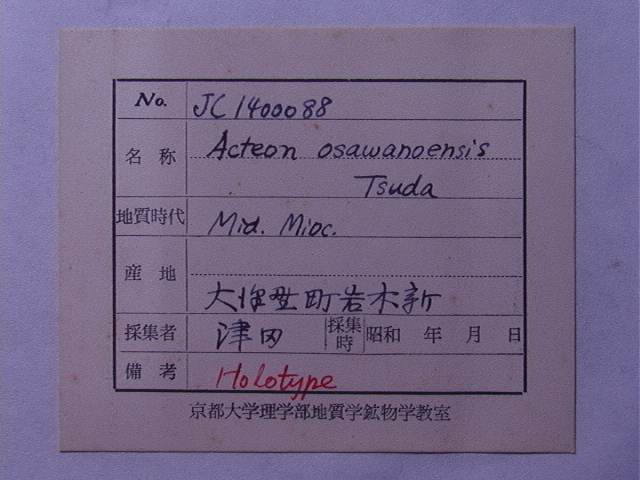 No. JC1400088
名称 Acteon osawanoensis
Tsuda
地質時代 Mid. Mioc.
産地
町岩木新
採集者 津田 採集時 昭和 年 月 日
備考 Holotype
京都大学理学部地質学鉱物学教室